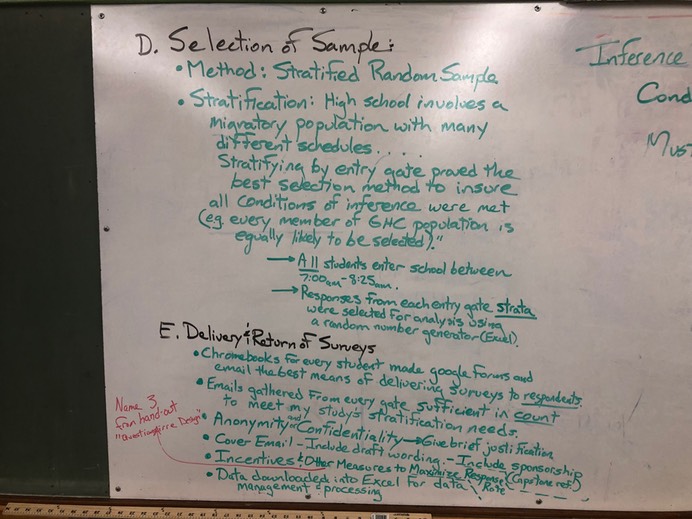 D. Selection of Sample:
• Method: Stratified Random Sample
• Stratification: High school involves a
migratory population with many
different schedules. . . . .
Stratifying by entry gate proved the
best selection method to insure
all conditions of inference were met
(eg. every member of GHC population is
equally likely to be selected)."
→ All students enter school between
7:00am - 8:25am.
→ Responses from each entry gate strata
were selected for analysis using
a random number generator (Excel).
E. Delivery & Return of Surveys
• Chromebooks for every student made google forms and
email the best means of delivering surveys to respondents.
• Emails gathered from every gate sufficient in count
to meet my study's stratification needs.
• Anonymity and Confidentiality → Give brief justification
• Cover Email - Include draft wording - Include sponsorship
• Incentives & Other Measures to Maximize Response Rate (Capstone ref.)
• Data downloaded into Excel for data
management & processing
Name 3
from hand-out
"Questionnaire Design"
Inference
Cond
Must